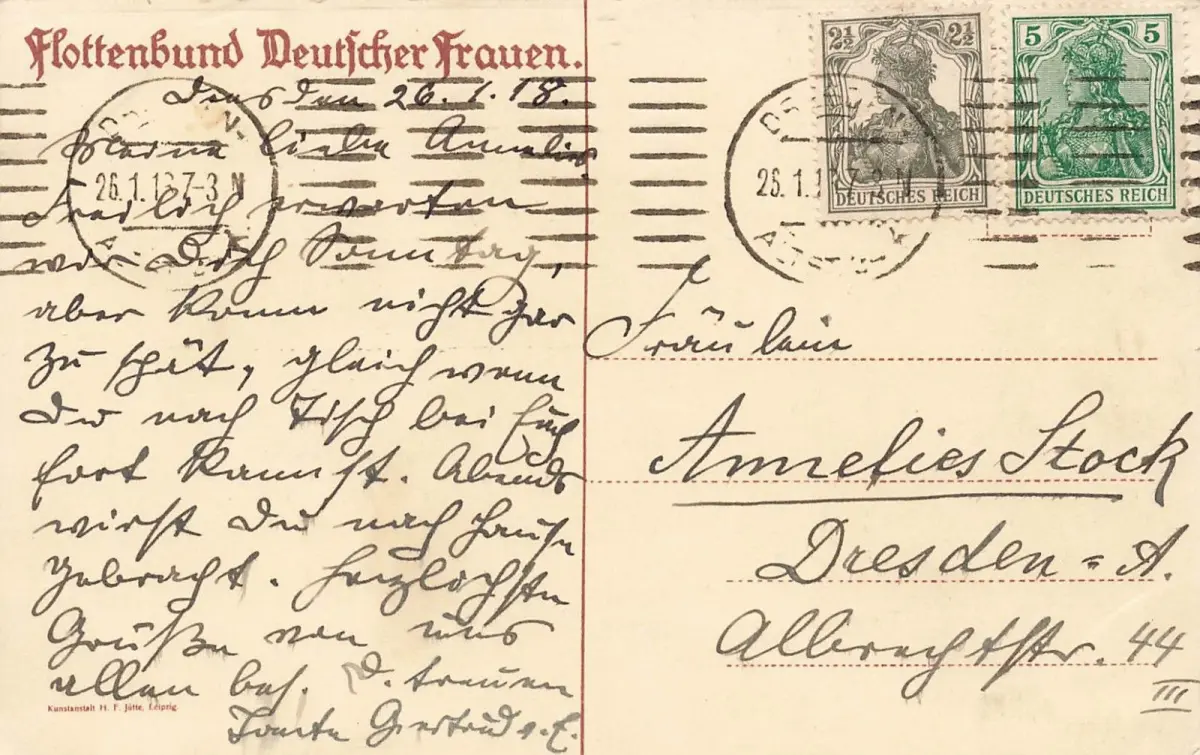 Flottenbund Deutscher Frauen.
Dresden 26.1.18.
Meine liebe Annelies
Freilich erwarten
wir Dich Sonntag,
aber komm nicht gar
zu spät, gleich wenn
Du nach Tisch bei Euch
fort kannst. Abends
wirst Du nach Hause
gebracht. Herzlichste
Grüße von uns
allen bes. D. treuen
Tante Gertrud
Kunstanstalt H. F. Jütte, Leipzig.
26.1.18 7-3 N
DRESDEN
26.1.18 7-3 N
ALTSTADT
2½ 2½
DEUTSCHES REICH
5 5
DEUTSCHES REICH
Fräulein
Annelies Stock
Dresden = A.
Albrechtstr. 44
III